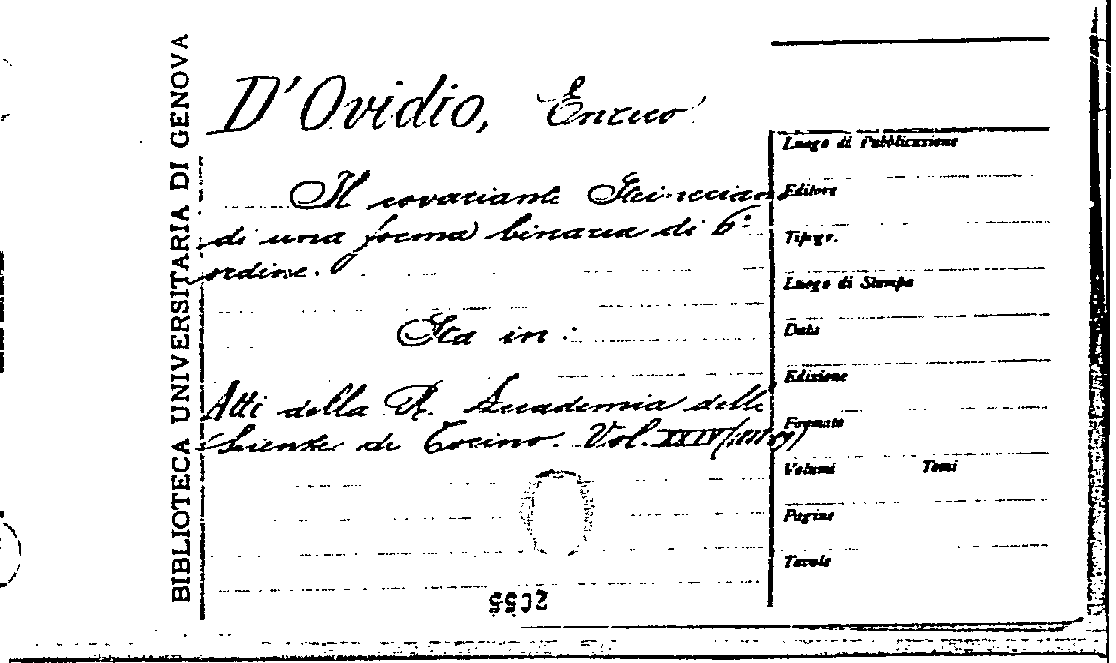 BIBLIOTECA UNIVERSITARIA DI GENOVA
D'Ovidio, Enrico
Il covariante Steinerciano
di una forma binaria di 6°
ordine.
Sta in:
Atti della R. Accademia delle
Scienze di Torino. Vol. XXIV
Luogo di Pubblicazione
Editore
Tipogr.
Luogo di Stampa
Data
Edizione
Formato
Volumi Tomi
Pagine
Tavole
2055